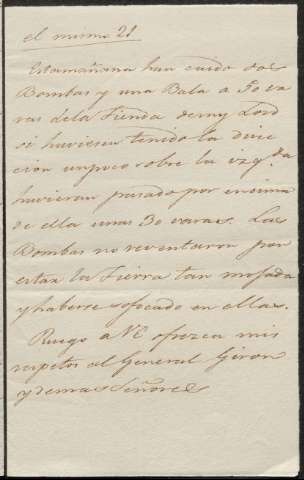 el mismo 21
Esta mañana han caido dos
Bombas y una Bala a 50 va
ras dela Tienda de my Lord
si huviesen tenido la direc
cion unpoco sobre la izq.da
huvieran pasado por encima
de ella unas 30 varas. Las
Bombas no reventaron por
estar la Tierra tan mojada
y haberse sofocado en ellas.
Ruego a VE ofrezca mis
respetos al General Giron
y demas Señores